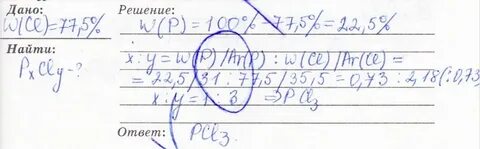 Дано:
W(Cl)=77,5%
Найти:
PxCly=?
Решение:
W(P) = 100% - 77,5% = 22,5%
x : y = W(P)/Ar(P) : W(Cl)/Ar(Cl) =
= 22,5/31 : 77,5/35,5 = 0,73 : 2,18 (:0,73)
x : y = 1 : 3 ⇒ PCl3
Ответ: PCl3.